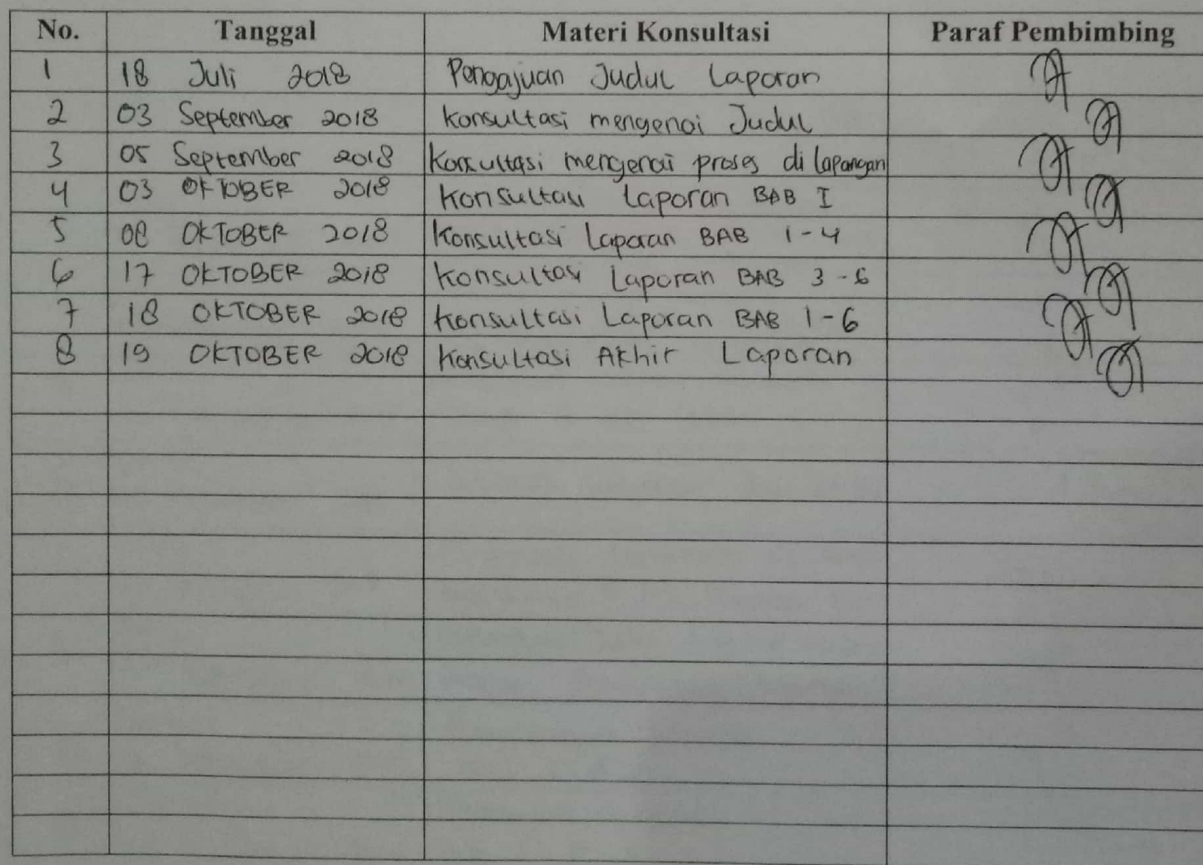 No. Tanggal Materi Konsultasi Paraf Pembimbing
1 18 Juli 2018 Pengajuan Judul Laporan
2 03 September 2018 Konsultasi mengenai Judul
3 05 September 2018 Konsultasi mengenai proses di lapangan
4 03 OKTOBER 2018 Konsultasi Laporan BAB I
5 08 OKTOBER 2018 Konsultasi Laporan BAB 1-4
6 17 OKTOBER 2018 Konsultasi Laporan BAB 3-6
7 18 OKTOBER 2018 Konsultasi Laporan BAB 1-6
8 19 OKTOBER 2018 Konsultasi Akhir Laporan